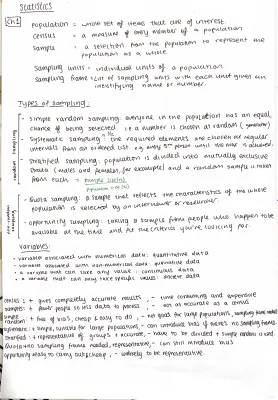 Statistics
Ch1
population = whole set of items that are of interest
census = a measure of every member of a population
sample = a selection from the population to represent the population as a whole
sampling units = individual units of a population
sampling frame = list of sampling units with each unit given an identifying name or number
Types of sampling:
Random sampling
• Simple random sampling: everyone in the population has an equal chance of being selected i.e a number is chosen at random (
• Systematic sampling: the required elements are chosen at regular intervals from an ordered list e.g every 5th person until the max is achieved.
• Stratified sampling: population is divided into mutually exclusive strata (males and females, for example) and a random sample is taken from each →
• Quota sampling: a sample that reflects the characteristics of the whole population is selected by an interviewer or researcher
• opportunity sampling: taking a sample from people who happen to be available at the time and fit the criteria you're looking for.
Variables:
• variable associated with numerical data: quantitative data
• variable associated with non-numerical data: qualitative data
• a variable that can take any value: continuous data
• a variable that can only take specific values: discrete data
census: + gives completely accurate results, - time consuming and expensive
samples: + fewer people so less data to process, - not as accurate as a census
simple random: + free of bias, cheap & easy to do, - not good for large population, sampling frame needed
systematic: + simple, suitable for large populations, - can introduce bias if there's no sampling frame
stratified: + representative of groups + accurate, - have to be divided + simple random is used.
Quota: + no sampling frame needed, representative, - can still introduce bias
opportunity: easy to carry out, cheap, - unlikely to be representative.